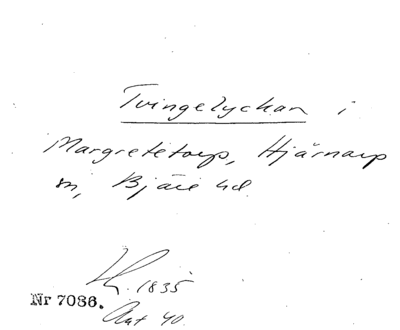 Tvingelyckan i
Margretetorp, Hjärnarp
sn, Bjäre hd.
1835
Nr 7086. Akt 40.